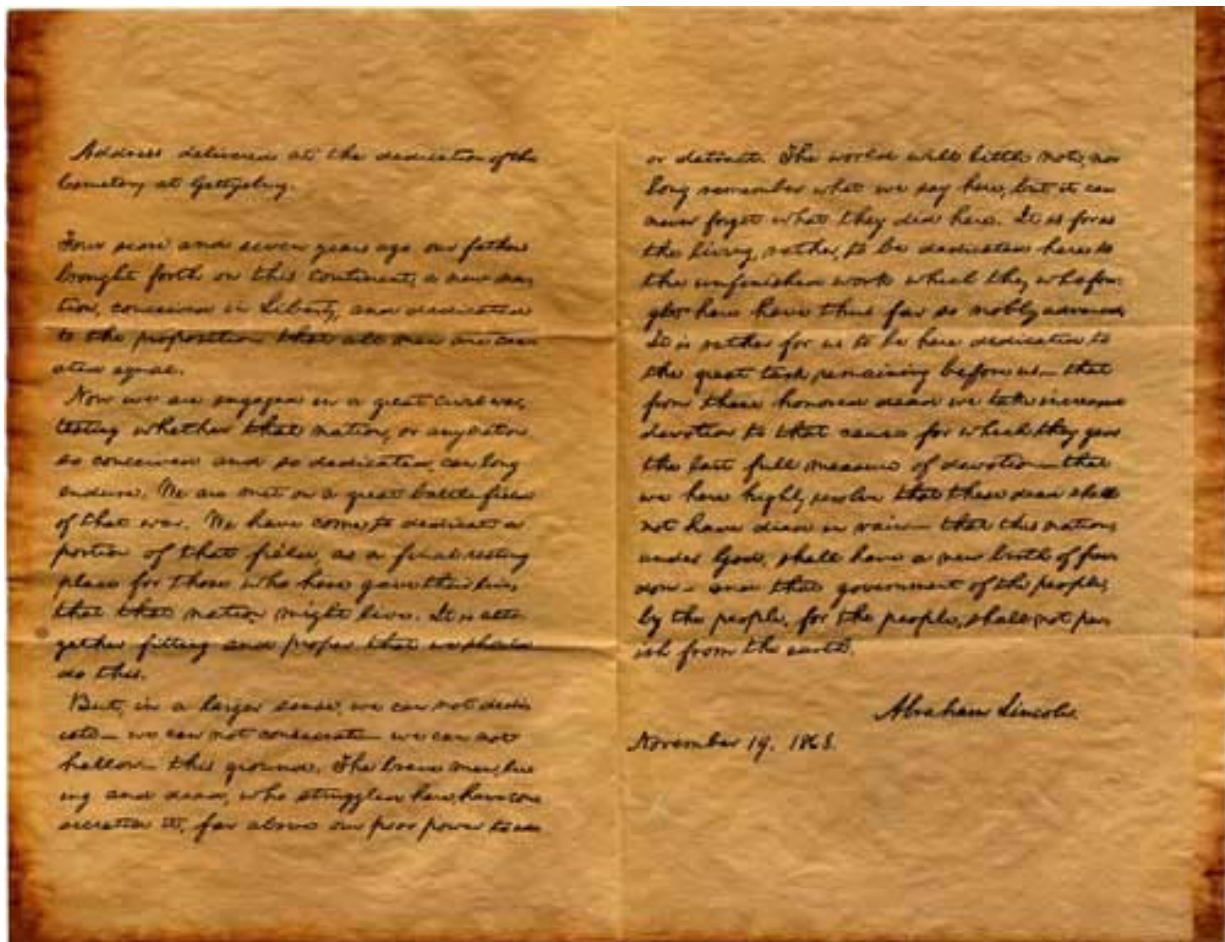 Address delivered at the dedication of the
Cemetery at Gettysburg.
Four score and seven years ago our fathers
brought forth on this continent, a new na-
tion, conceived in Liberty, and dedicated
to the proposition that all men are cre-
ated equal.
Now we are engaged in a great civil war,
testing whether that nation, or any nation
so conceived and so dedicated, can long
endure. We are met on a great battle field
of that war. We have come to dedicate a
portion of that field, as a final resting
place for those who here gave their lives
that that nation might live. It is alto-
gether fitting and proper that we should
do this.
But, in a larger sense, we can not dedi-
cate— we can not consecrate— we can not
hallow— this ground. The brave men, liv-
ing and dead, who struggled here, have con-
secrated it, far above our poor power to add
or detract. The world will little note, nor
long remember what we say here, but it can
never forget what they did here. It is for us
the living, rather, to be dedicated here to
the unfinished work which they who fou-
ght here have thus far so nobly advanced.
It is rather for us to be here dedicated to
the great task remaining before us— that
from these honored dead we take increased
devotion to that cause for which they gave
the last full measure of devotion— that
we here highly resolve that these dead shall
not have died in vain— that this nation,
under God, shall have a new birth of free-
dom— and that government of the people,
by the people, for the people, shall not per-
ish from the earth.
Abraham Lincoln.
November 19. 1863.